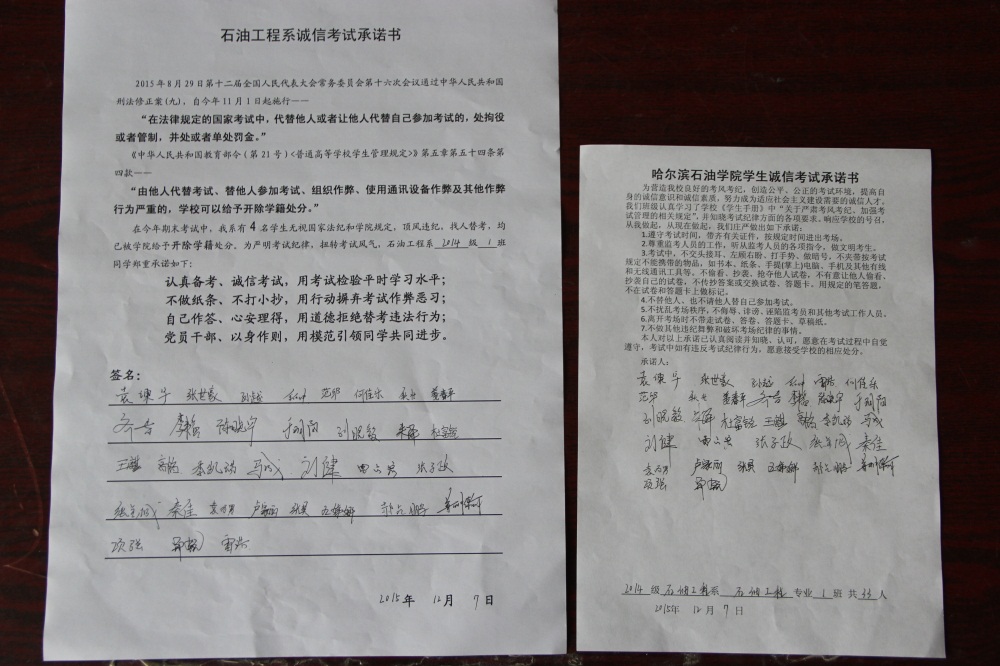 石油工程系诚信考试承诺书
2015年8月29日第十二届全国人民代表大会常务委员会第十六次会议通过中华人民共和国
刑法修正案(九)，自今年11月1日起施行——
“在法律规定的国家考试中，代替他人或者让他人代替自己参加考试的，处拘役
或者管制，并处或者单处罚金。”
《中华人民共和国教育部令（第21号）<普通高等学校学生管理规定>》第五章第五十四条第
四款——
“由他人代替考试、替他人参加考试、组织作弊、使用通讯设备作弊及其他作弊
行为严重的，学校可以给予开除学籍处分。”
在今年期末考试中，我系有4名学生无视国家法纪和学院规定，顶风违纪，找人替考，均
已被学院给于开除学籍处分。为严明考试纪律，扭转考试风气，石油工程系2014级1班
同学郑重承诺如下：
认真备考、诚信考试，用考试检验平时学习水平；
不做纸条、不打小抄，用行动摒弃考试作弊恶习；
自己作答、心安理得，用道德拒绝替考违法行为；
党员干部、以身作则，用模范引领同学共同进步。
签名：
张世豪 孙越 范华 何佳乐 董春平
齐吉 李哲 陈晓宇 刘晓毅
王麒 高皓 李凯瑞 马成 刘健 张子政
秦佳
项强
2015年 12月 7日
哈尔滨石油学院学生诚信考试承诺书
为营造我校良好的考风考纪，创造公平、公正的考试环境，提高自
身的诚信意识和诚信素质，努力成为适应社会主义建设需要的诚信人才。
我们班级认真学习了学校《学生手册》中“关于严肃考风考纪，加强考
试管理的相关规定”，并知晓考试纪律方面的各项要求。响应学校的号召，
从我做起，从现在做起，我们庄严做出如下承诺：
1.遵守考试时间，带齐有关证件，按规定时间进出考场。
2.尊重监考人员的工作，听从监考人员的各项指令，做文明考生。
3.考试中，不交头接耳、左顾右盼、打手势、做暗号，不夹带按考试
规定不能携带的物品，如书本、纸条、手提(掌上)电脑、手机及其他有线
和无线通讯工具等。不偷看、抄袭、抢夺他人试卷，不有意让他人偷看、
抄袭自己的试卷，不传抄答案或交换试卷、答题卡，用规定的笔答题，
不在试卷和答题卡上做标记。
4.不替他人、也不请他人替自己参加考试。
5.不扰乱考场秩序，不侮辱、诽谤、诬陷监考员和其他考试工作人员。
6.离开考场时不带走试卷、答卷、答题卡、草稿纸。
7.不做其他违纪舞弊和破坏考场纪律的事情。
本人对以上承诺已认真阅读并知晓、认可，愿意在考试过程中自觉
遵守，考试中如有违反考试纪律行为，愿意接受学校的相应处分。
承诺人：
张世豪 孙越 何佳乐
范华 董春平 齐吉 李哲 陈晓宇
刘晓毅 王麒 高皓 李凯瑞 马成
刘健 张子政 秦佳
项强
2014级石油工程系 石油工程专业 1班 共33人
2015年 12月 7日